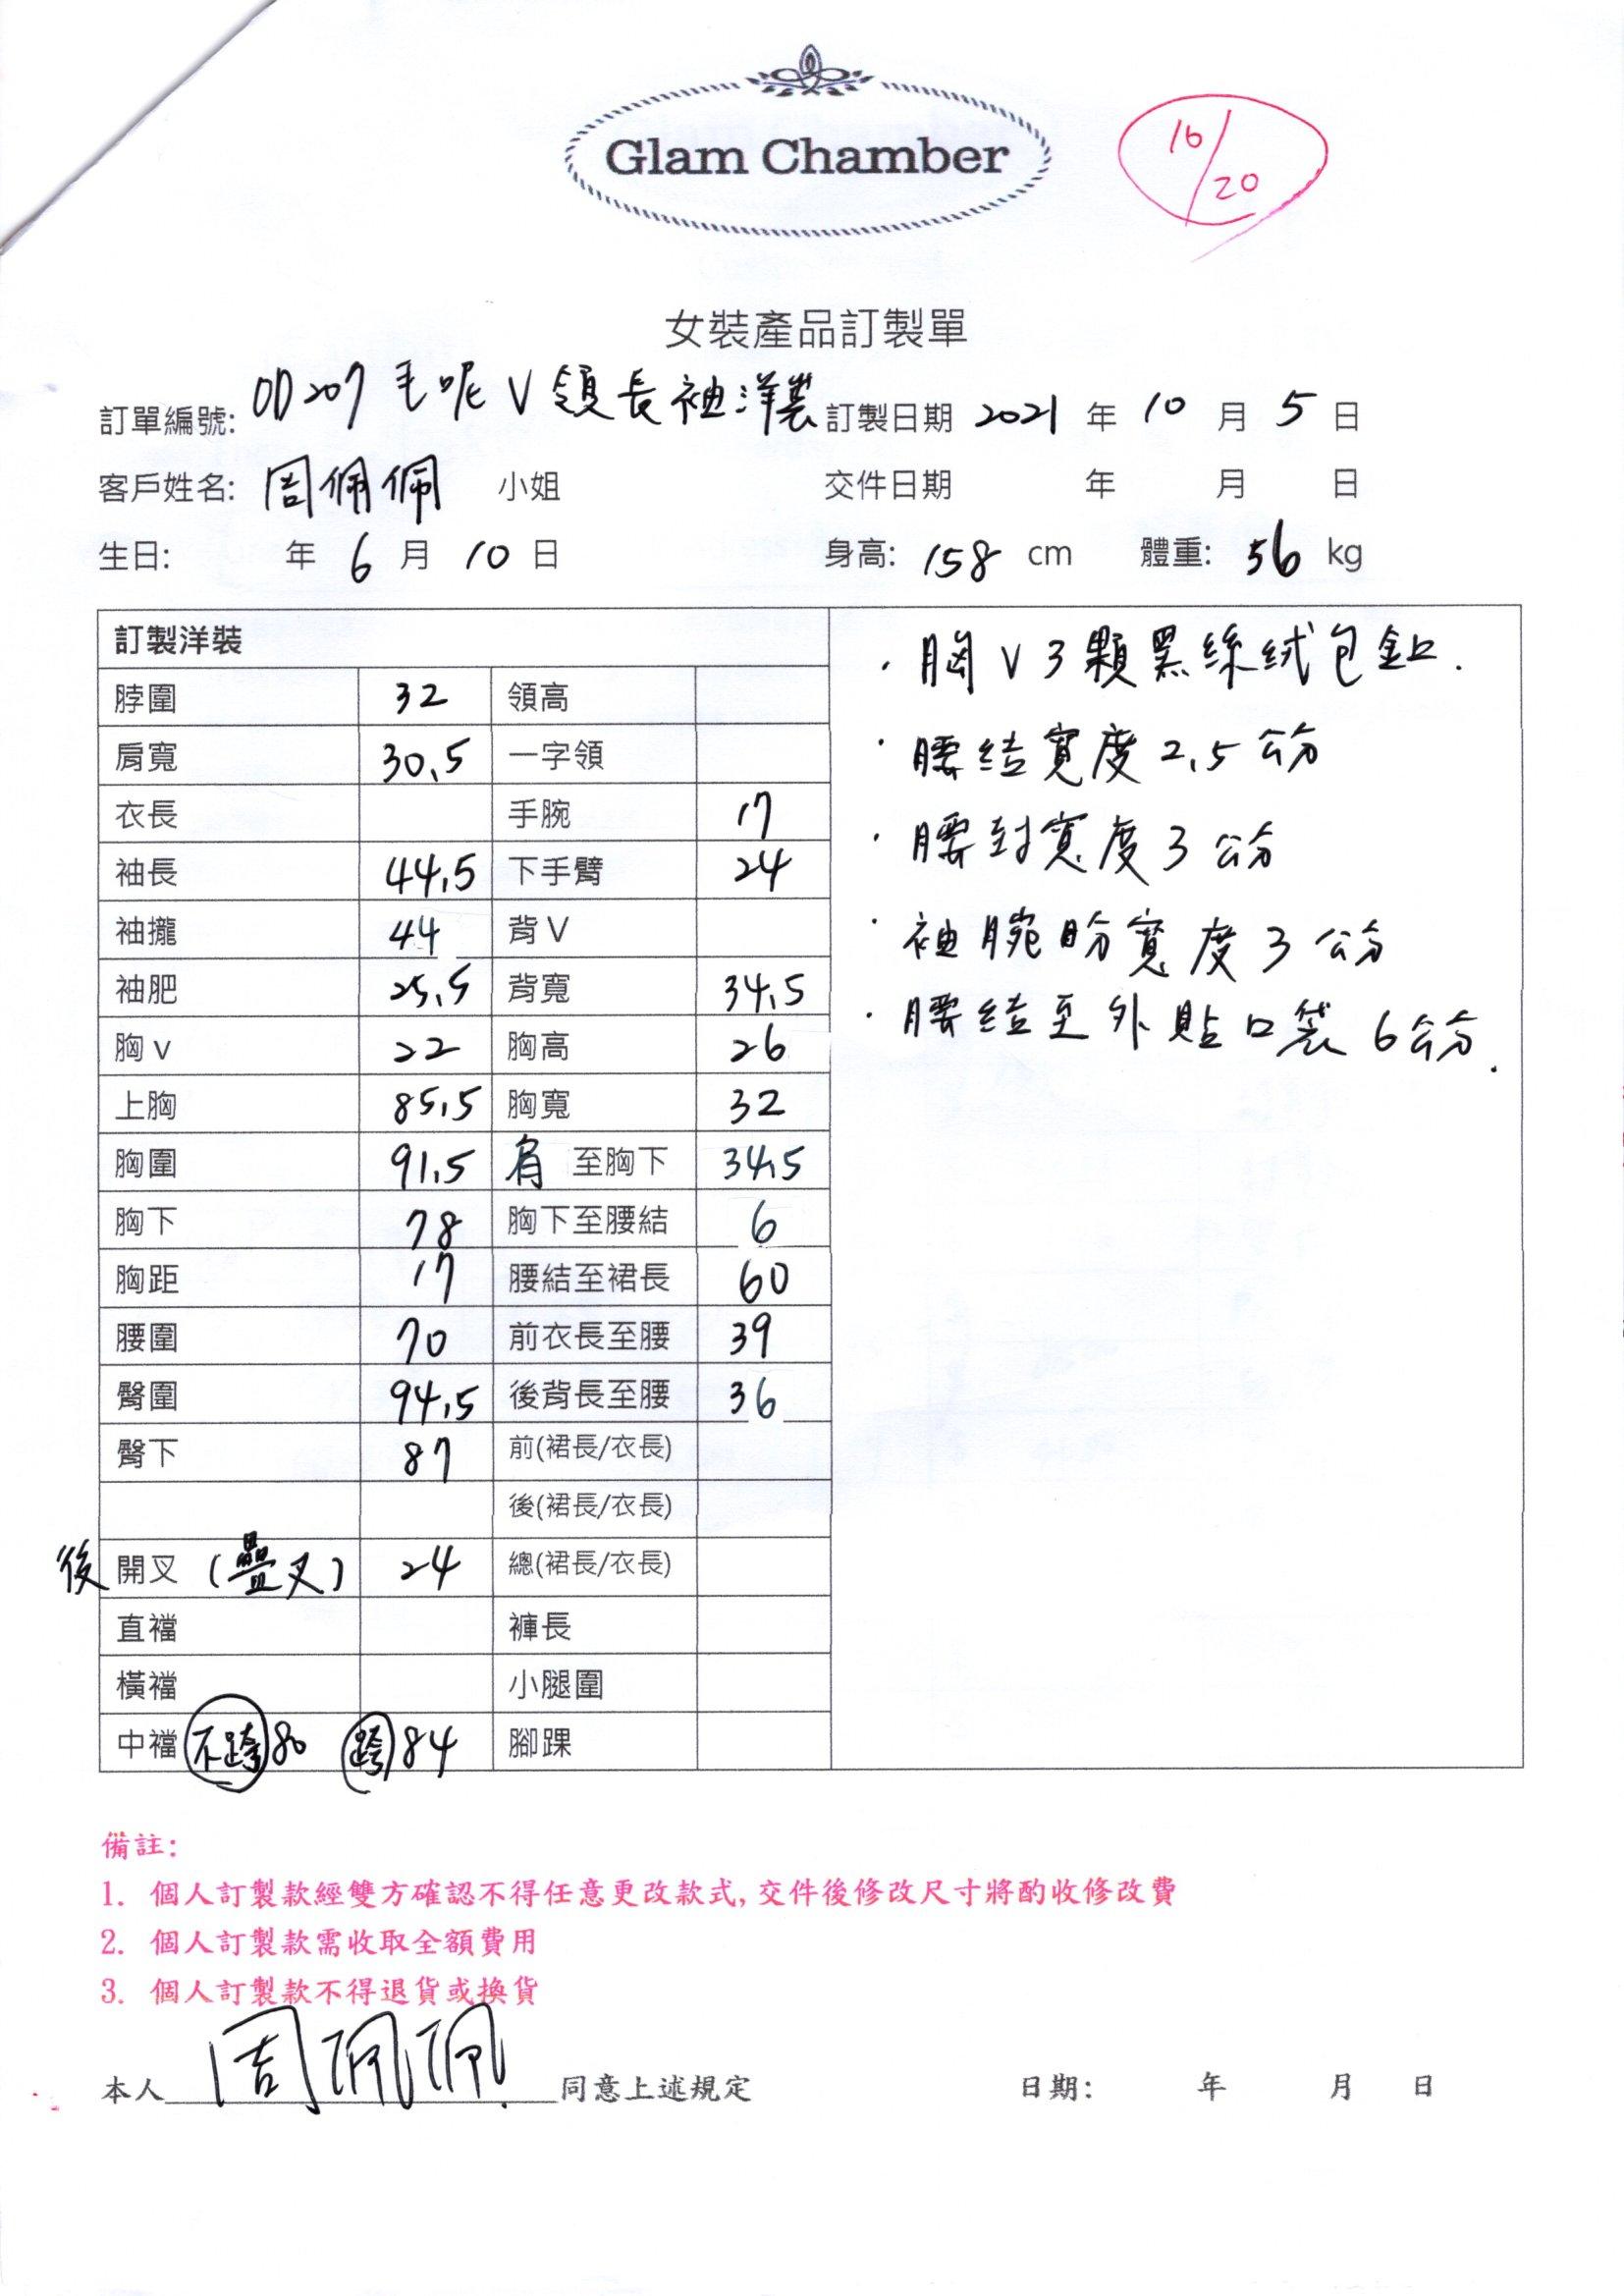 Glam Chamber
16/20
女裝產品訂製單
訂單編號: OD207 毛呢V領長袖洋裝 訂製日期 2021 年 10 月 5 日
客戶姓名: 周佩佩 小姐 交件日期 年 月 日
生日: 年 6 月 10 日 身高: 158 cm 體重: 56 kg
訂製洋裝
脖圍 32 領高
肩寬 30.5 一字領
衣長 手腕 17
袖長 44.5 下手臂 24
袖攏 44 背V
袖肥 25.5 背寬 34.5
胸v 22 胸高 26
上胸 85.5 胸寬 32
胸圍 91.5 肩 至胸下 34.5
胸下 78 胸下至腰結 6
胸距 17 腰結至裙長 60
腰圍 70 前衣長至腰 39
臀圍 94.5 後背長至腰 36
臀下 87 前(裙長/衣長)
後(裙長/衣長)
後 開叉 (疊叉) 24 總(裙長/衣長)
直襠 褲長
橫襠 小腿圍
中襠 不跨 80 跨 84 腳踝
· 胸V3顆黑絲絨包釦.
· 腰結寬度2.5公分
· 腰封寬度3公分
· 袖腕 寬度3公分
· 腰結至外貼口袋6公分.
備註:
1. 個人訂製款經雙方確認不得任意更改款式, 交件後修改尺寸將酌收修改費
2. 個人訂製款需收取全額費用
3. 個人訂製款不得退貨或換貨
本人 周佩佩 同意上述規定 日期: 年 月 日